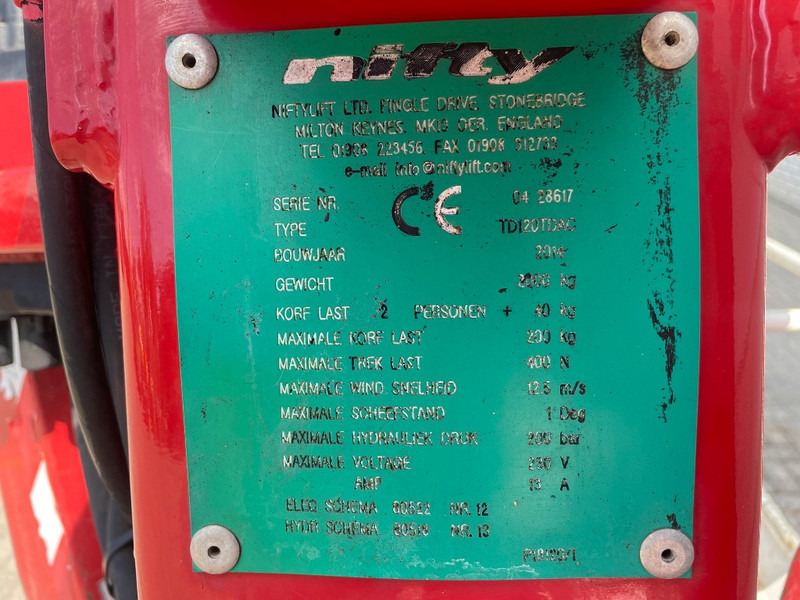 nifty
NIFTYLIFT LTD. FINGLE DRIVE. STONEBRIDGE
MILTON KEYNES. MK13 0ER. ENGLAND
TEL 01908 223456. FAX 01908 312733
e-mail info@niftylift.com
CE
SERIE NR. 04 28617
TYPE TD120TDAC
BOUWJAAR 2014
GEWICHT 2000 kg
KORF LAST 2 PERSONEN + 40 kg
MAXIMALE KORF LAST 200 kg
MAXIMALE TREK LAST 400 N
MAXIMALE WIND SNELHEID 12.5 m/s
MAXIMALE SCHEEFSTAND 1 Deg
MAXIMALE HYDRAULIEK DRUK 200 bar
MAXIMALE VOLTAGE 230 V
AMP 13 A
ELEC SCHEMA NR. 12
HYDR SCHEMA NR. 13